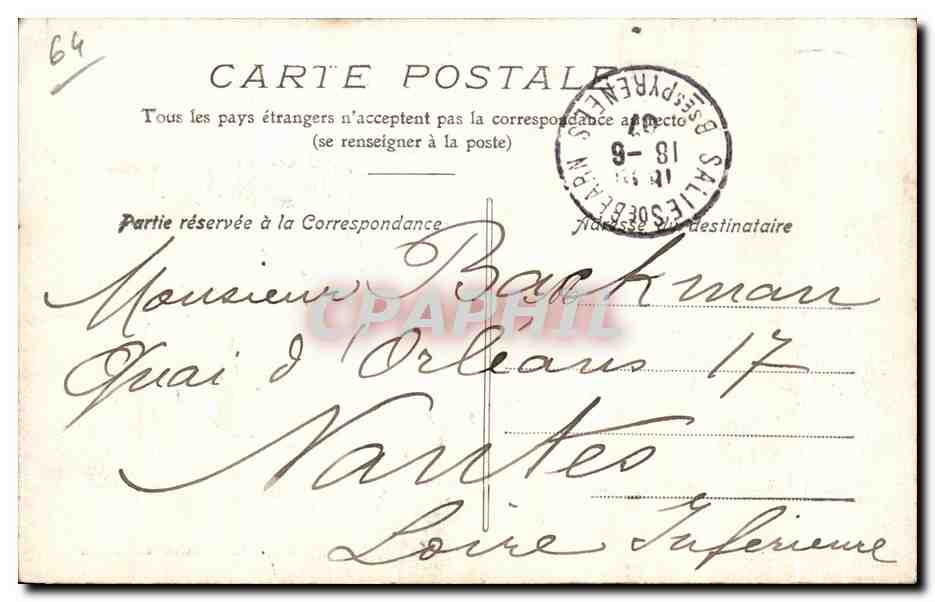 64
CARTE POSTALE
Tous les pays étrangers n'acceptent pas la correspondance au recto
(se renseigner à la poste)
SALIES DE BEARN
BSES PYRENEES
18 -6
07
Partie réservée à la Correspondance
Adresse du destinataire
Monsieur Backman
CPAPHIL
Quai d'Orléans 17
Nantes
Loire Inférieure